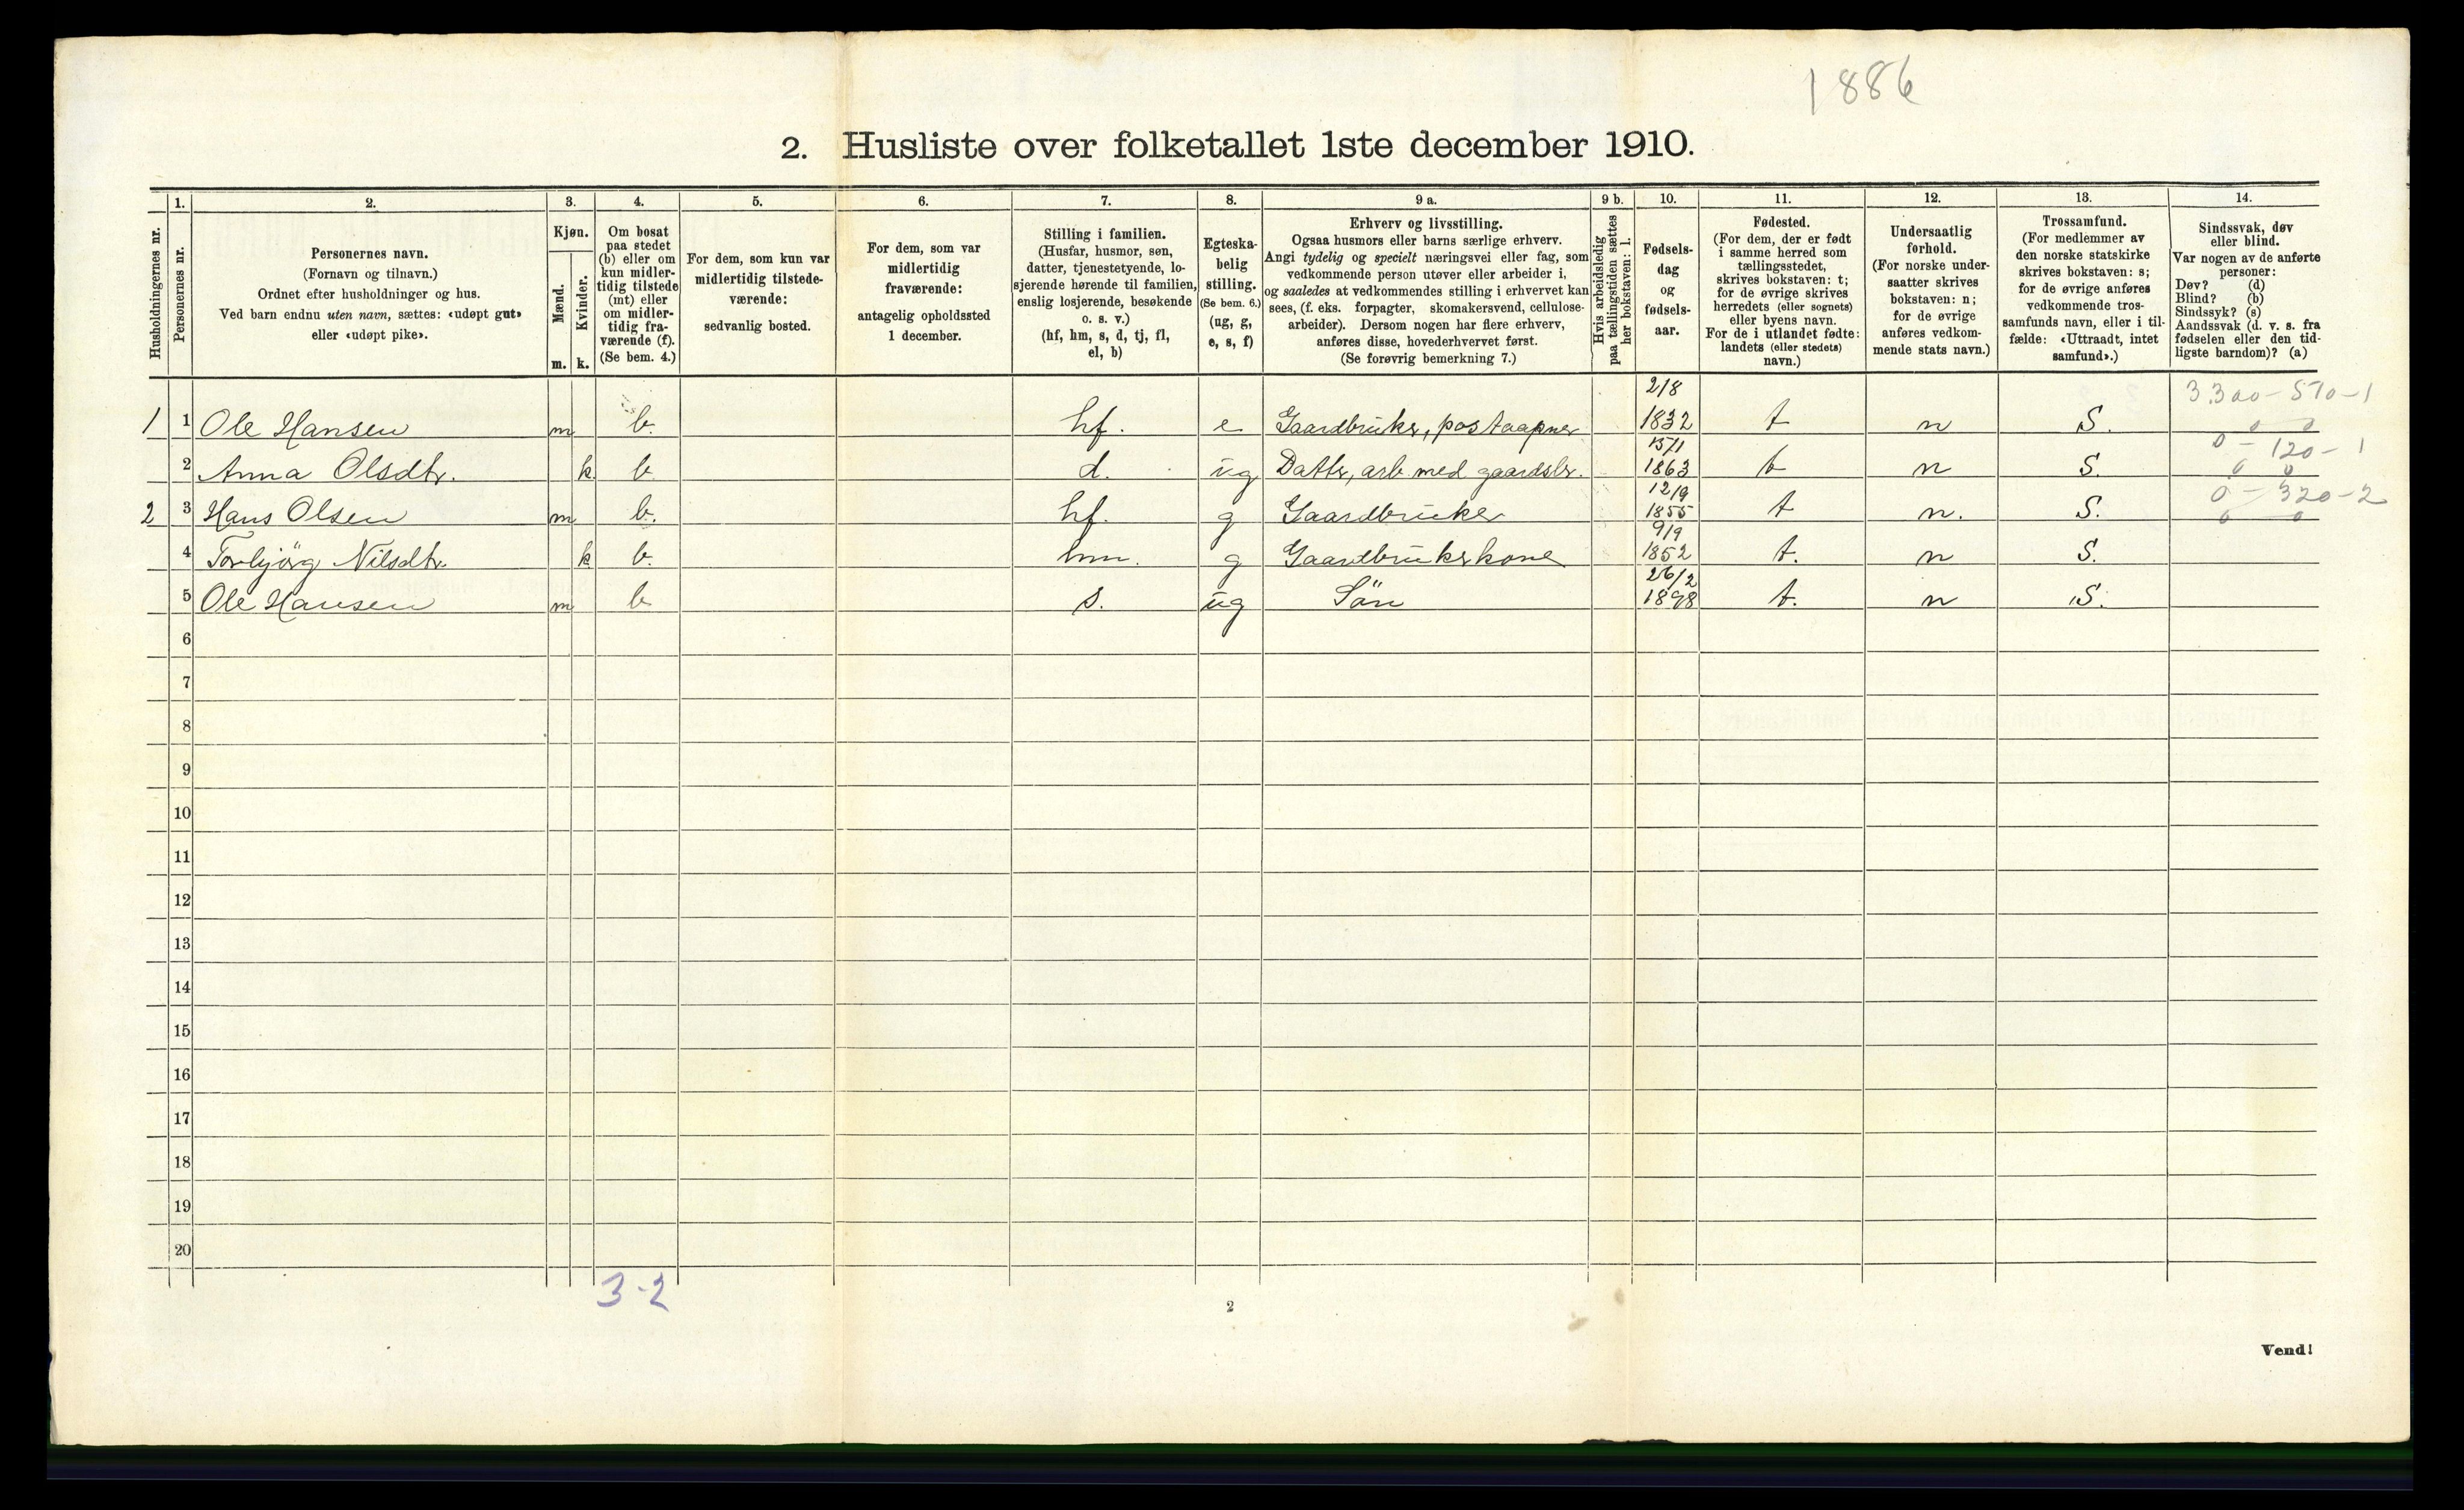 1886
2. Husliste over folketallet 1ste december 1910.
Husholdningernes nr.
1.
Personernes nr.
2.
Personernes navn.
(Fornavn og tilnavn.)
Ordnet efter husholdninger og hus.
Ved barn endnu uten navn, sættes: «udøpt gut»
eller «udøpt pike».
3.
Kjøn.
Mænd.
Kvinder.
m. k.
4.
Om bosat
paa stedet
(b) eller om
kun midler-
tidig tilstede
(mt) eller
om midler-
tidig fra-
værende (f).
(Se bem. 4.)
5.
For dem, som kun var
midlertidig tilstede-
værende:
sedvanlig bosted.
6.
For dem, som var
midlertidig
fraværende:
antagelig opholdssted
1 december.
7.
Stilling i familien.
(Husfar, husmor, søn,
datter, tjenestetyende, lo-
sjerende hørende til familien,
enslig losjerende, besøkende
o. s. v.)
(hf, hm, s, d, tj, fl,
el, b)
8.
Egteska-
belig
stilling.
(Se bem. 6.)
(ug, g,
e, s, f)
9 a.
Erhverv og livsstilling.
Ogsaa husmors eller barns særlige erhverv.
Angi tydelig og specielt næringsvei eller fag, som
vedkommende person utøver eller arbeider i,
og saaledes at vedkommendes stilling i erhvervet kan
sees, (f. eks. forpagter, skomakersvend, cellulose-
arbeider). Dersom nogen har flere erhverv,
anføres disse, hovederhvervet først.
(Se forøvrig bemerkning 7.)
9 b.
Hvis arbeidsledig
paa tællingstiden sættes
her bokstaven: l.
10.
Fødsels-
dag
og
fødsels-
aar.
11.
Fødested.
(For dem, der er født
i samme herred som
tællingsstedet,
skrives bokstaven: t;
for de øvrige skrives
herredets (eller sognets)
eller byens navn.
For de i utlandet fødte:
landets (eller stedets)
navn.)
12.
Undersaatlig
forhold.
(For norske under-
saatter skrives
bokstaven: n;
for de øvrige
anføres vedkom-
mende stats navn.)
13.
Trossamfund.
(For medlemmer av
den norske statskirke
skrives bokstaven: s;
for de øvrige anføres
vedkommende tros-
samfunds navn, eller i til-
fælde: «Uttraadt, intet
samfund».)
14.
Sindssvak, døv
eller blind.
Var nogen av de anførte
personer:
Døv? (d)
Blind? (b)
Sindssyk? (s)
Aandssvak (d. v. s. fra
fødselen eller den tid-
ligste barndom)? (a)
1 1 Ole Hansen m b. hf. e Gaardbruker, postaapner 2/8 1832 t n S. 3300-570-1
0 0
2 Anna Olsdtr. k. b. d. ug Datter, arb med gaardsbr. 15/1 1863 t n S. 0-120-1
0 0
2 3 Hans Olsen m b. hf. g Gaardbruker 12/9 1855 t n. S. 0-320-2
0 0
4 Torbjörg Nilsdtr. k b. hm. g Gaardbrukerkone 9/9 1852 t. n S.
5 Ole Hansen m b s. ug Sön 26/2 1898 t. n S.
6
7
8
9
10
11
12
13
14
15
16
17
18
19
20
3-2
2
Vend!